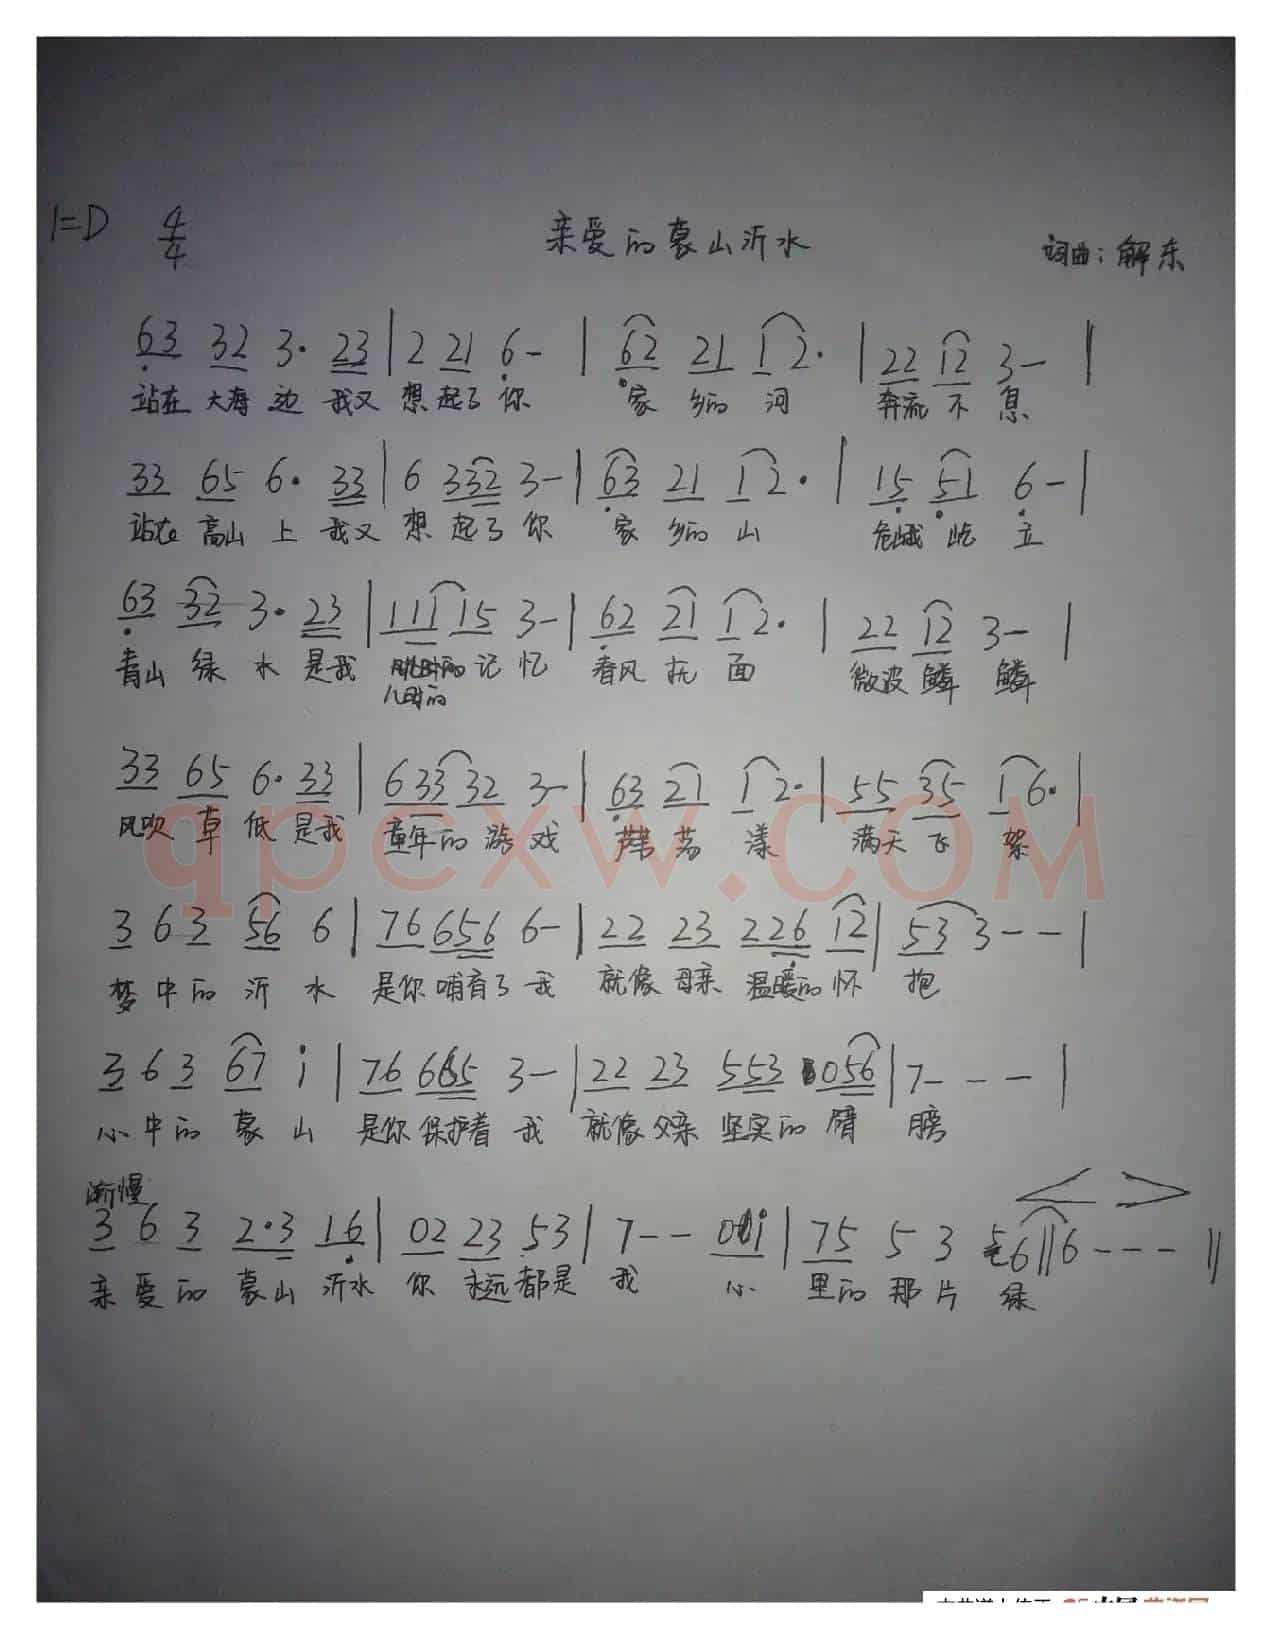 1=D 4/4 亲爱的蒙山沂水 词曲：解东
63 32 3· 23 | 2 21 6- | 62 21 1 2· | 22 12 3- |
站在 大海 边 我又 想 起了 你 家 乡的 河 奔流 不 息
33 65 6· 33 | 6 332 3- | 63 21 1 2· | 15 51 6- |
站在 高山 上 我又 想 起了 你 家 乡的 山 巍峨 屹 立
63 32 3· 23 | 111 15 3- | 62 21 1 2· | 22 12 3- |
青山 绿 水 是我 记 忆 春风 抚 面 微波 鳞 鳞
儿时的
33 65 6· 33 | 633 32 3- | 63 21 1 2· | 55 35 1 6· |
风吹 草 低 是我 童年的 游 戏 芦苇 荡 漾 满天 飞 絮
3 6 3 56 6 | 76 656 6- | 22 23 226 12 | 53 3 - - |
梦 中 的 沂 水 是你 哺育了 我 就像 母亲 温暖的 怀 抱
3 6 3 67 i | 76 665 3- | 22 23 553 056 | 7- - - |
心 中 的 蒙 山 是你 保护着 我 就像 父亲 坚实的 臂 膀
渐慢
3 6 3 2·3 16 | 02 23 53 | 7 - - 0i | 75 5 3 56 || 6 - - - ||
亲 爱 的 蒙山 沂水 你 永远 都是 我 心 里的 那 片 绿
qpcxw.COM